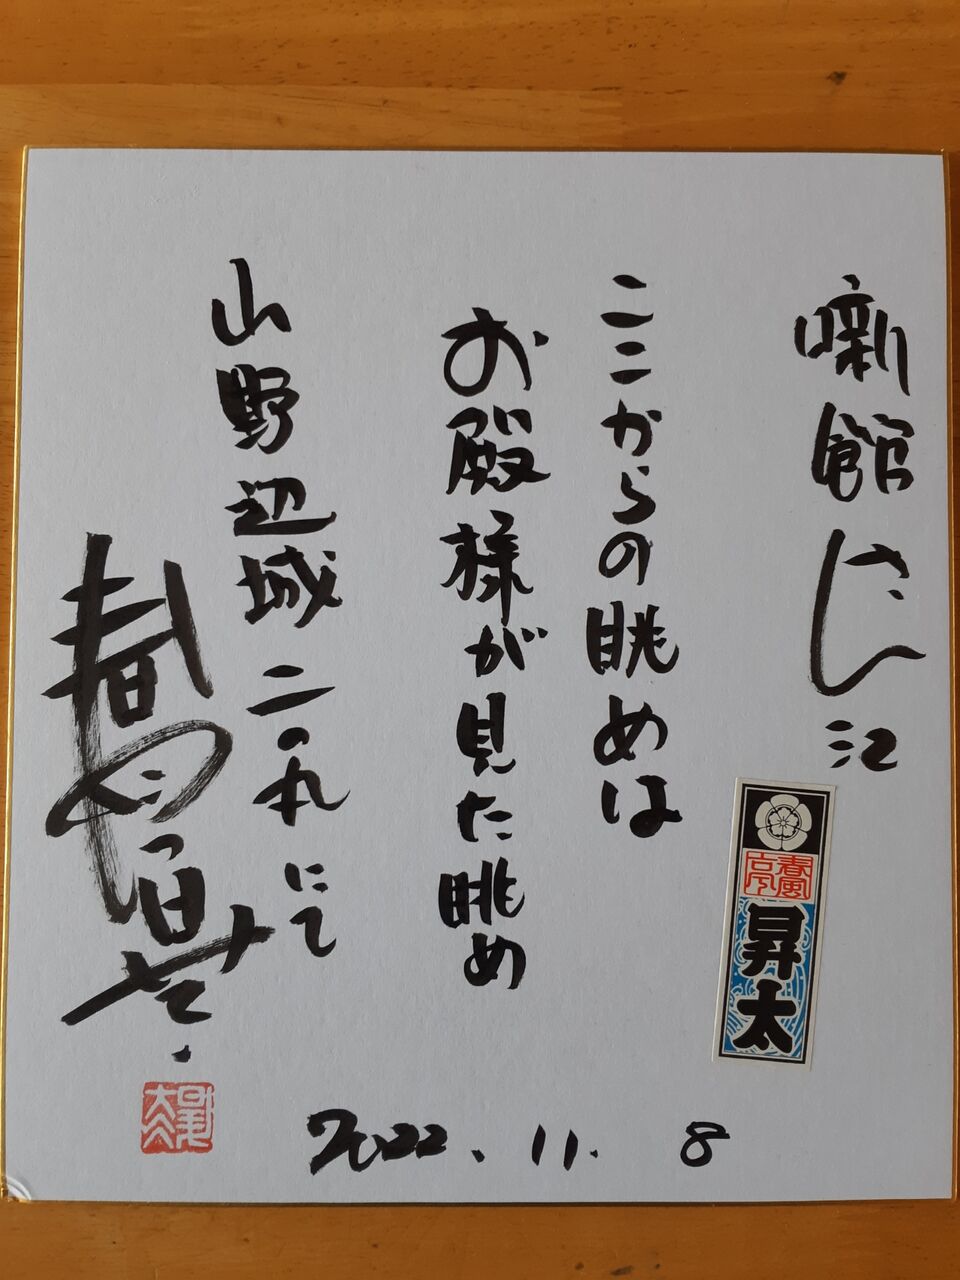 噺館さん江
ここからの眺めは
お殿様が見た眺め
山野辺城二の丸にて
春風亭昇太
春風亭
昇太
昇太
2022.11.8